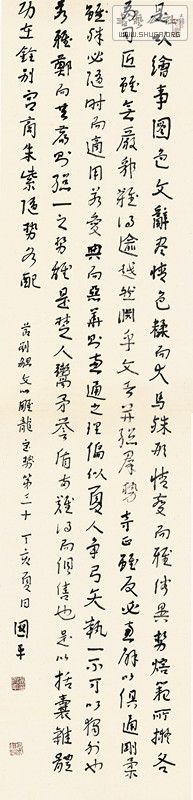 是以繪事圖色文辭盡情色糅而犬馬殊形情交而雅俗異勢鎔範所擬各
有司匠雖無嚴郛難得逾越然淵乎文者並總群勢奇正雖反必兼解以俱通剛柔
雖殊必隨時而適用若愛典而惡華則兼通之理偏似夏人爭弓矢執一不可以獨射也
若雅鄭而共篇則總一之勢離是楚人鬻矛譽盾兩難得而俱售也是以括囊雜體
功在銓別宮商朱紫隨勢各配
劉勰文心雕龍定勢第三十 丁亥夏日 國平
www.SHUFA.ORG